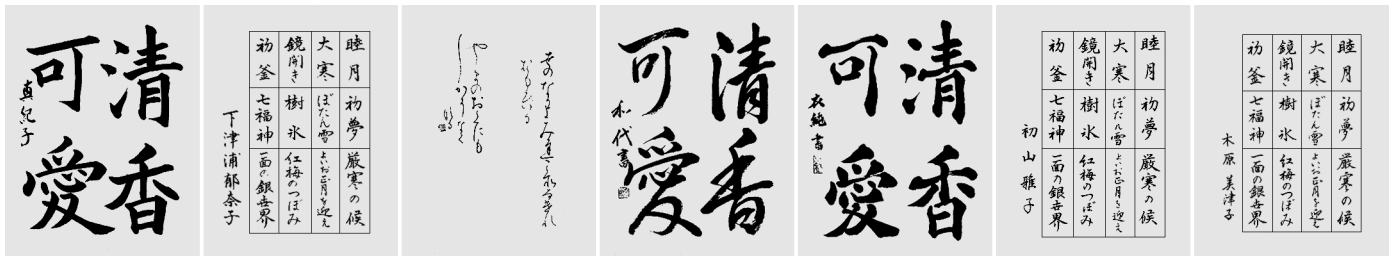 清香
可愛
真紀子
睦月 初夢 厳寒の候
大寒 ぼたん雪 よいお正月を迎え
鏡開き 樹氷 紅梅のつぼみ
初釜 七福神 一面の銀世界
下津浦郁奈子
清香
可愛
和代書
清香
可愛
衣純書
睦月 初夢 厳寒の候
大寒 ぼたん雪 よいお正月を迎え
鏡開き 樹氷 紅梅のつぼみ
初釜 七福神 一面の銀世界
初山雅子
睦月 初夢 厳寒の候
大寒 ぼたん雪 よいお正月を迎え
鏡開き 樹氷 紅梅のつぼみ
初釜 七福神 一面の銀世界
木原美津子